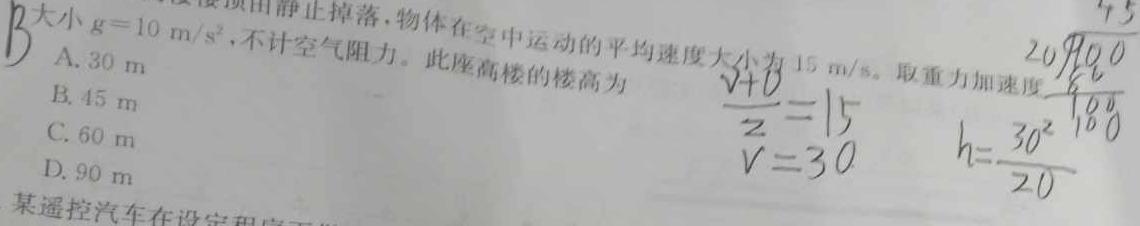 顶由静止掉落,物体在空中运动的平均速度大小为 15 m/s。取重力加速度
大小 g=10 m/s²,不计空气阻力。此座高楼的楼高为
B
A. 30 m
B. 45 m
C. 60 m
D. 90 m
某遥控汽车在设定程序
(v+0)/2=15
v=30
h=30²/20
45
20)900
100
100